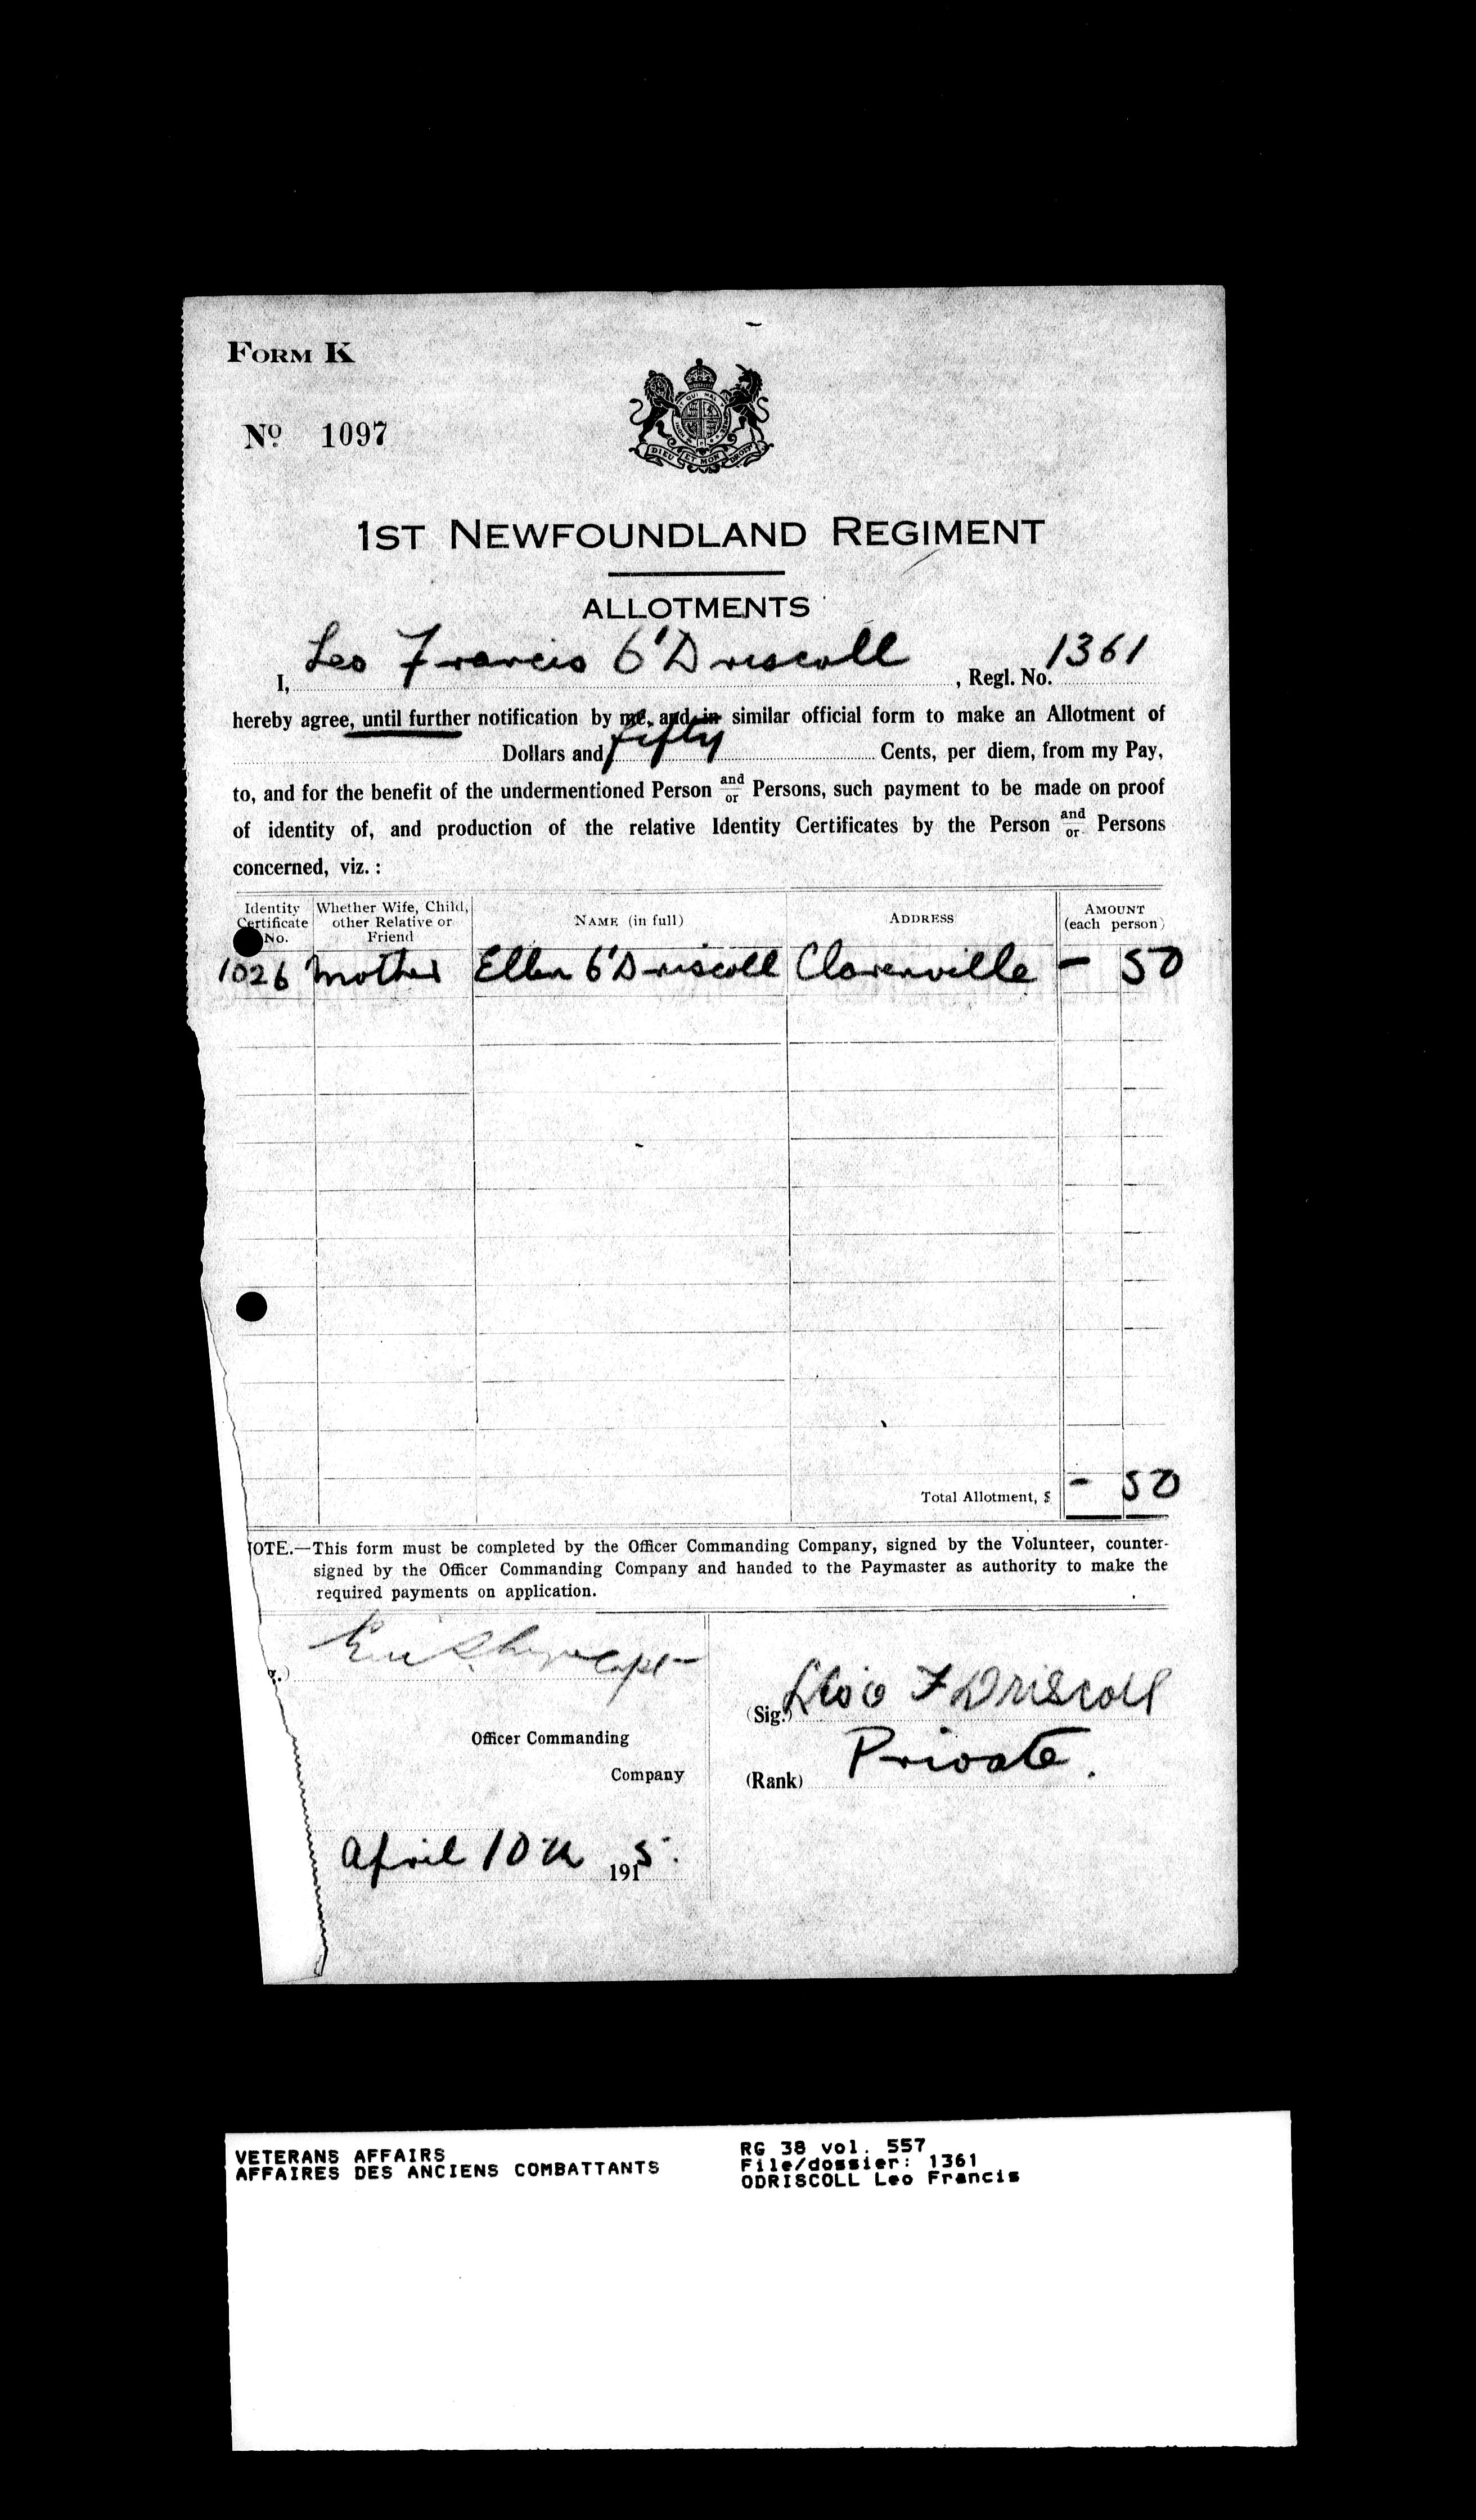 FORM K
No. 1097
DIEU ET MON DROIT
1ST NEWFOUNDLAND REGIMENT
ALLOTMENTS
I, Leo Francis O'Driscoll, Regl. No. 1361
hereby agree, until further notification by me, and in similar official form to make an Allotment of
Dollars and fifty Cents, per diem, from my Pay,
to, and for the benefit of the undermentioned Person and/or Persons, such payment to be made on proof
of identity of, and production of the relative Identity Certificates by the Person and/or Persons
concerned, viz. :
Identity Certificate No. Whether Wife, Child, other Relative or Friend NAME (in full) ADDRESS AMOUNT (each person)
1026 Mother Ellen O'Driscoll Clarenville - 50
Total Allotment, $ - 50
OTE.—This form must be completed by the Officer Commanding Company, signed by the Volunteer, counter-
signed by the Officer Commanding Company and handed to the Paymaster as authority to make the
required payments on application.
Capt
(Sig.) Leo F Driscoll
Officer Commanding
Company
(Rank) Private.
April 10th 1915.
VETERANS AFFAIRS
AFFAIRES DES ANCIENS COMBATTANTS
RG 38 vol. 557
File/dossier: 1361
ODRISCOLL Leo Francis